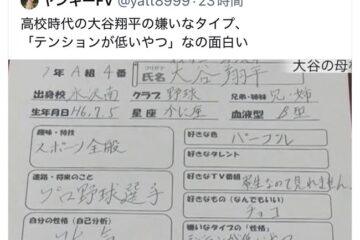 ヤンキーFV @yatt8999・23時間
高校時代の大谷翔平の嫌いなタイプ、
「テンションが低いやつ」なの面白い
大谷の母校
1年A組4番
氏名 大谷翔平
出身校 水沢南 クラブ 野球 兄弟・姉妹 兄・姉
生年月日 H6.7.5 星座 かに座 血液型 B型
趣味・特技
スポーツ全般
好きな色 パープル
好きなタレント
進路・将来のこと
プロ野球選手
好きなTV番組 寮生なので見れません
好きなもの(なんでもいい)
チョコ
自分の性格(自己分析)
嫌いなタイプの"性格"
テンションが低いやつ